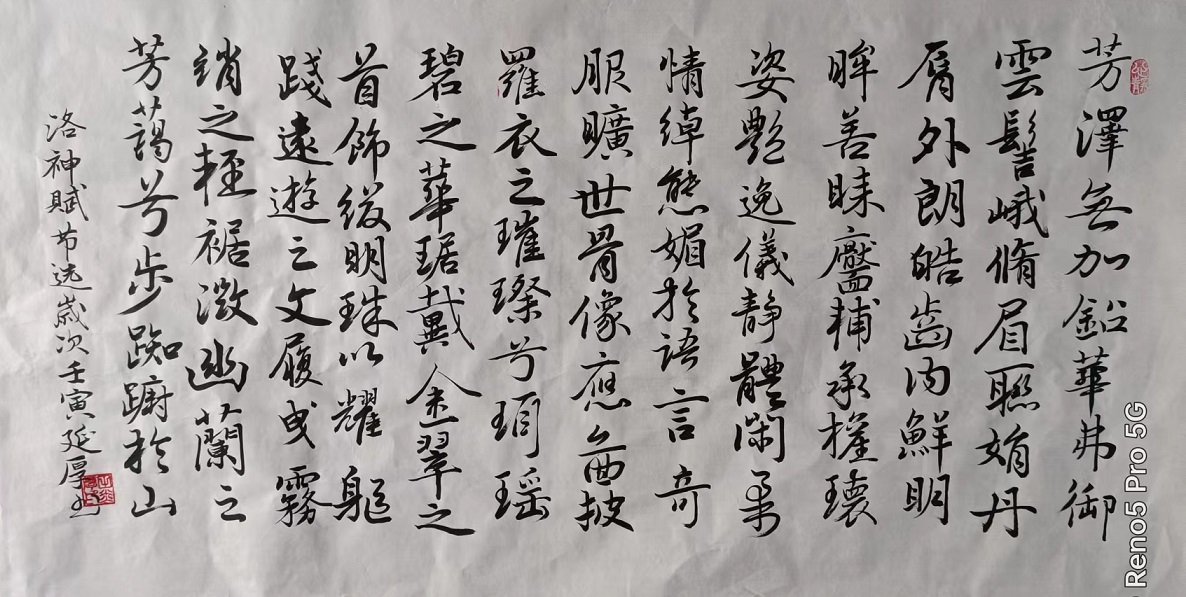 芳澤無加鉛華弗御
雲髻峨脩眉聯娟丹
脣外朗皓齒内鮮明
眸善睞靨輔承權瓌
姿艷逸儀靜體閑柔
情綽態媚於語言奇
服曠世骨像應啚披
羅衣之璀璨兮珥瑶
碧之華琚戴金翠之
首飾綴明珠以耀軀
踐遠遊之文履曳霧
綃之輕裾微幽蘭之
芳藹兮步踟躕於山
洛神賦节选歲次壬寅延厚书
Reno5 Pro 5G